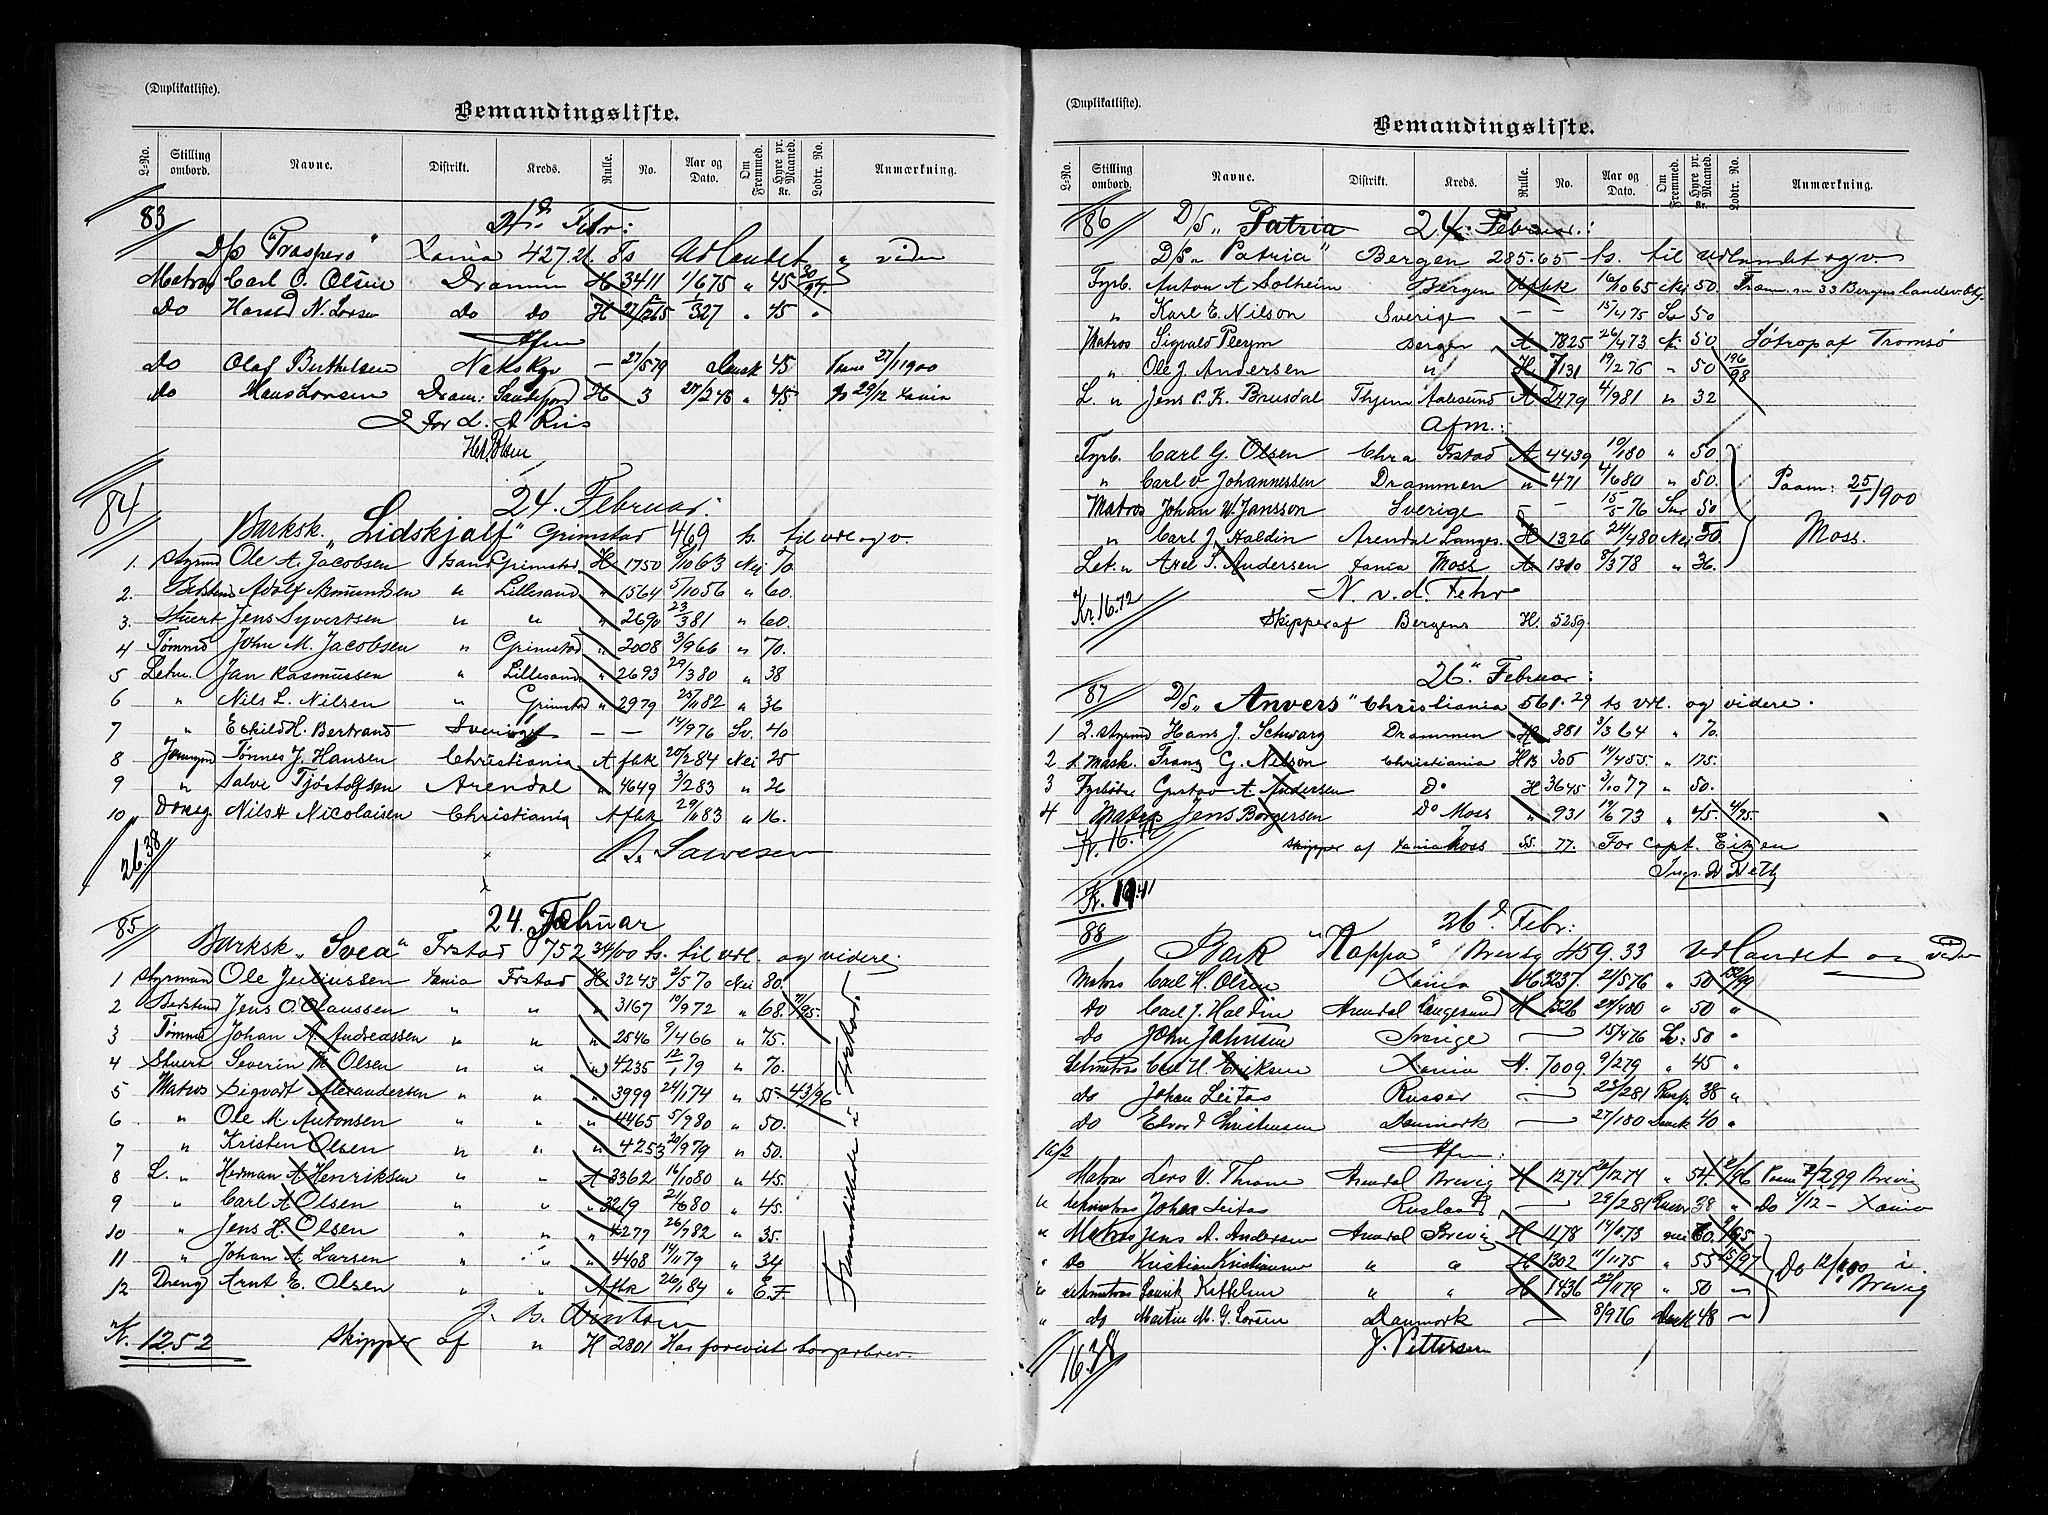 (Duplikatliste).
Bemandingsliste.
L-No. Stilling ombord. Navne. Distrikt. Kreds. Rulle. No. Aar og Dato. Om Fremmed. Hyre pr. Maaned. Kr. Lodtr. No. Anmærkning.
83 24d Febr:
D/S "Prospero" Xania 427.21 Ts Udlandet " vider
Matros Carl O. Olsen Dramm H 3411 1/675 " 45 30/97
Do Harald N. Larsen do do H 327 " 45 "
Afm
Do Olaf Berthelsen Nakskov — 27/579 Dansk 45 27/11900
do Hans Larsen Dram: Sandefjord H 3 27/248 " 45 Do 29/12 Xania
For L. A Riis
84 24. Februar:
Barksk. "Lidskjalf" Grimstad 469 ts. til udl og v.
1. Styrmd Ole A. Jacobsen Grimstad H 1750 9/1063 Nei 70
2. Adolf Asmundsen " Lillesand " 1564 5/1056 " 60.
3. Stuert Jens Syvertsen " " " 2690 23/381 " 60.
4 Tømmd John M. Jacobsen " Grimstad " 2008 3/966 " 70.
5 Letm. Jan Rasmussen " Lillesand " 2693 29/380 " 38
6 " Nils L. Nilsen Grimstad " 2979 25/1182 " 36
7 " Eskild H. Bertrand Sverige — — 14/976 Sv. 40
8 Jungmd Tønnes J. Hansen Christiania A flk 20/284 Nei 25
9 " Salve Tjøstolfsen Arendal " 4649 3/283 " 26
10 " Dreng. Nils H Nicolaisen Christiania A flk 29/1183 " 16.
26.38
85 24. Februar
Barksk "Svea" Frstad 752 34/100 ts. til udl. og videre.
1 Styrmand Ole Juliussen Xania Frstad H 3243 2/570 Nei 80.
2 Jens O. Olaussen " " " 3167 19/972 " 68. 7/95.
3 Tømmd Johan A. Andreassen " " " 2546 9/466 " 75.
4 Stuert Severin M Olsen " " " 4235 12/1 79 " 70.
5 Matros Sigvart Alexandersen " " " 3999 24/1174 " 55 43/96
6. " Ole M Antonsen " " " 4465 5/980 " 50.
7 " Kristen Olsen " " " 4253 20/979 " 50.
8 L. " Herman A Henriksen " " A 3362 16/1080 " 45.
9 " Carl A Olsen " " " 3219 21/680 " 45.
10 " Jens H. Olsen " " " 4279 26/782 " 35.
11 " Johan A. Larsen " " " 4408 14/1179 " 34
12 Dreng Arnt E. Olsen " " A flk 26/184 " E.F.
Kr. 12.52 Skipper af " H 2801 Har forevist borgerbrev.
(Duplikatliste).
Bemandingsliste.
L-No. Stilling ombord. Navne. Distrikt. Kreds. Rulle. No. Aar og Dato. Om Fremmed. Hyre pr. Maaned. Kr. Lodtr. No. Anmærkning.
86 D/S " Patria 24. Februar.:
D/S "Patria" Bergen 285.65 ts. til udlandet og v.
Fyrb. Anton A Solheim Bergen 16/1065 Nei 50.
" Karl E. Nilson Sverige — — 15/475 Sv 50
Matros Sigvald Pleym Bergen A 7825 26/473 50 Søtrop af Tromsø
" Ole J Andersen " H 7131 19/276 " 50 196/98
L. " Jens P. K. Brusdal Aalesund A 2479 4/981 " 32
Afm.:
Fyrb. Carl G. Olsen Chra Frstad A 4439 10/180 " 50
" Carl V Johannessen Drammen " 471 4/680 " 50. Paam: 25/1 1900
Matros Johan W. Jansson Sverige — — 15/5 76 Sv 50
" Carl J Haldin Arendal Langes. H 1326 24/480 Nei 50 Moss.
Let. " Axel T. Andersen Xania Moss A 1310 8/378 " 36.
Kr. 16.72 N. v. d. Fehr
Skipper af Bergens H. 5259.
26. Februar:
87 D/S " Anvers" Christiania 561.29 ts udl. og videre.
1 2. Styrmd Hans J. Schwarz Drammen H 881 3/3 64 " 70.
2 1. Mask. Franz G. Nilson Christiania HB 306 14/455 " 175.
3 Fyrbøter Gustav A Andersen Do H 3645 3/1077 " 50.
4 Matros Jens Borgersen Do Moss " 931 19/673 " 45. 4/95.
Kr. 16.72 Skipper af Xania Moss SS. 77. For Capt. Eitzen
Kr. 19.41
88 26d Febr:
Bark "Kappa" Brevig 459.33 Udlandet og vider
Matros Carl H. Olsen Xania 3237 21/576 " 50 192/99
Do Carl J. Haldin Arendal Langesund H 1326 24/480 " 50 "
Do John Johnsen Sverige — 15/476 Sv: 50 "
Letmatros Carl H. Eriksen Xania A. 7009 9/279 " 45 "
do Johan Leitas Russer — 23/281 Russ. 38 "
Do Edvard Christensen Danmark — 27/180 Dansk 40 "
10/2 Afm:
Matros Lars V. Throne Arendal Brevig H 1274 26/1274 " 54. 2/96 Paam 2/299 Brevig
" Letmatros Johan Leitas Rusland — 29/281 Russer 38 " Do 1/12 — Xania
" Matros Jens A. Andersen Arendal Brevig H 1178 14/1073 nei 60. 9/95
" do Kristian Kristiansen " " H 1302 11/1175 " 55 15/97 Do 12/1 00 i Brevig
" Letmatros Henrik Kittelsen " " H 1436 22/1179 " 50 —
" do Martin M. G. Larsen Danmark — 8/976 Dansk 48 —
16.38 J. Pettersen